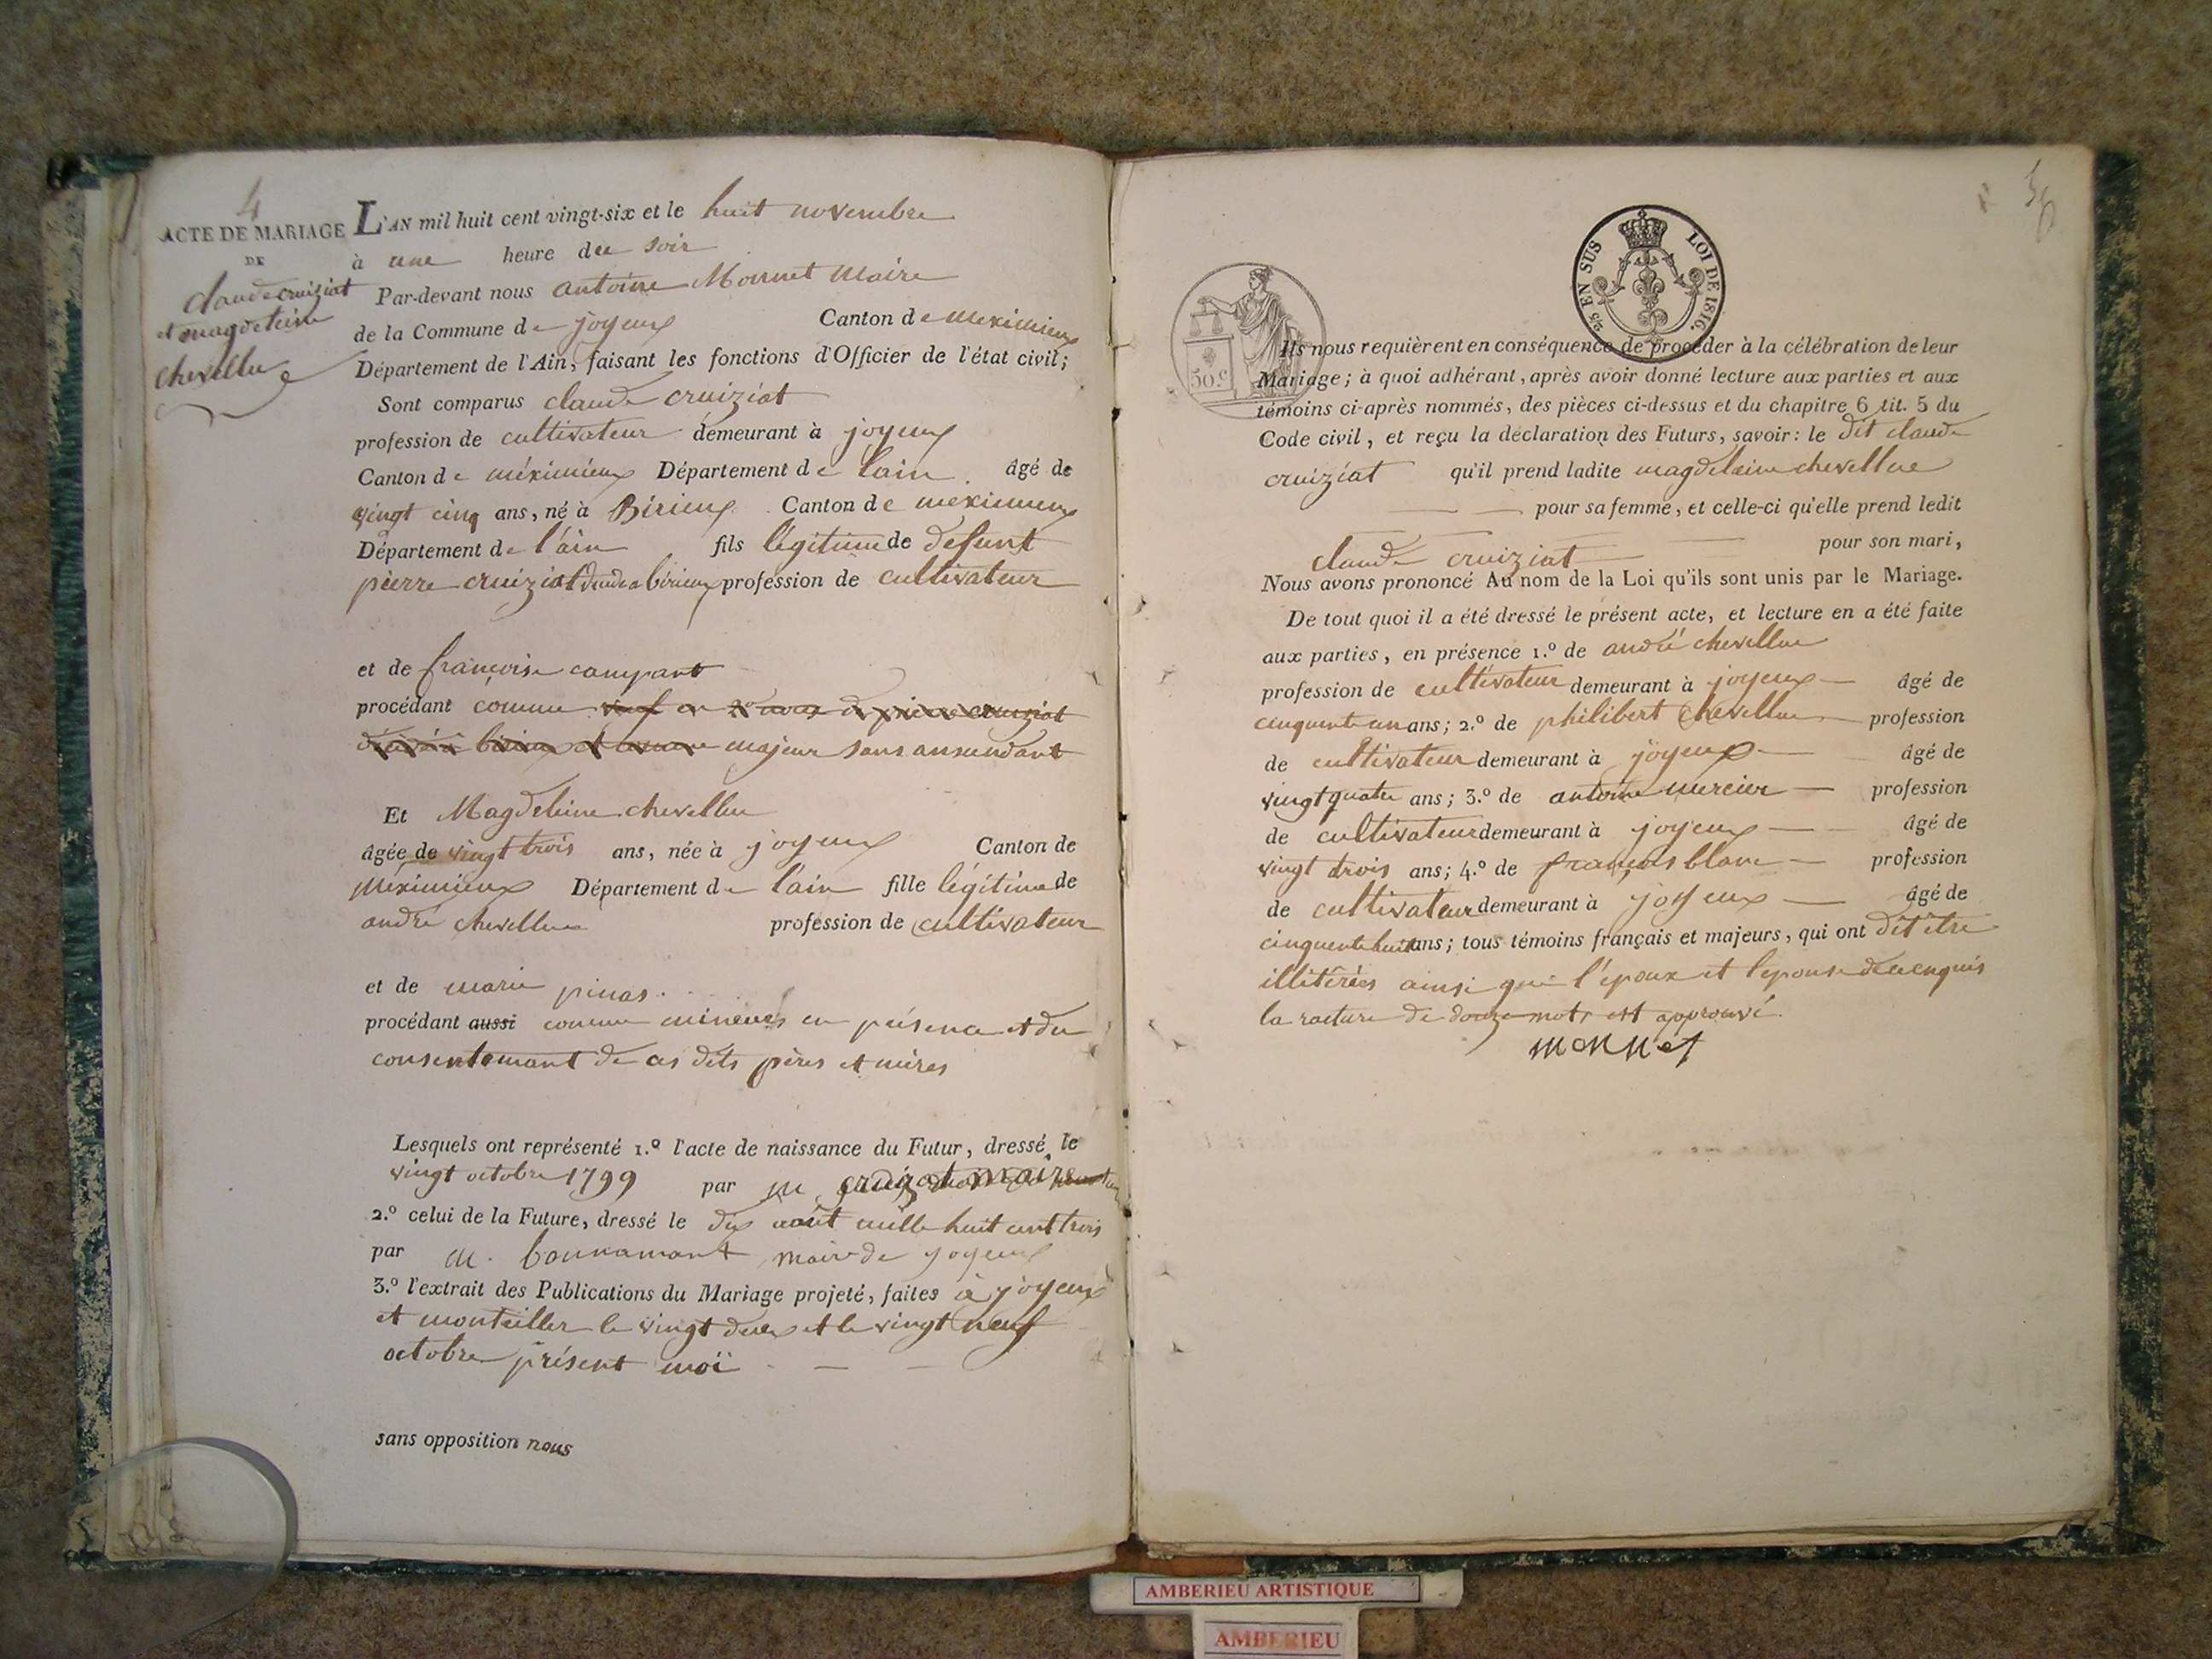 4
ACTE DE MARIAGE
DE
claude cruiziat
et magdeleine
chevellue
L'AN mil huit cent vingt-six et le huit novembre
à une heure du soir
Par-devant nous antoine Monnet Maire
de la Commune de joyeux Canton de meximieux
Département de l'Ain, faisant les fonctions d'Officier de l'état civil;
Sont comparus claude cruiziat
profession de cultivateur demeurant à joyeux
Canton de méximieux Département de lain âgé de
vingt cinq ans, né à Birieux Canton de meximieux
Département de l'ain fils légitime de defunt
pierre cruiziat profession de cultivateur
et de francoise campant
procédant comme
majeur sans ansendant
Et Magdeleine chevellue
âgée de vingt trois ans, née à joyeux Canton de
Méximieux Département de lain fille légitime de
andré chevellue profession de cultivateur
et de marie pinas.
procédant aussi comme mineurs en présence et du
consentemant de ces dits pères et mères
Lesquels ont représenté 1.º l'acte de naissance du Futur, dressé le
vingt octobre 1799 par m
2.º celui de la Future, dressé le dix août mille huit cent trois
par M. bonnamant maire de joyeux
3.º l'extrait des Publications du Mariage projeté, faites à joyeux
et monteiller le vingt deux et le vingt neuf
octobre présent moi
sans opposition nous
2/5 EN SUS LOI DE 1816.
50.c
Ils nous requièrent en conséquence de procéder à la célébration de leur
Mariage; à quoi adhérant, après avoir donné lecture aux parties et aux
témoins ci-après nommés, des pièces ci-dessus et du chapitre 6 tit. 5 du
Code civil, et reçu la déclaration des Futurs, savoir: le dit claude
cruiziat qu'il prend ladite magdeleine chevellue
pour sa femme, et celle-ci qu'elle prend ledit
claude cruiziat pour son mari,
Nous avons prononcé Au nom de la Loi qu'ils sont unis par le Mariage.
De tout quoi il a été dressé le présent acte, et lecture en a été faite
aux parties, en présence 1.º de andré chevellue
profession de cultivateur demeurant à joyeux âgé de
cinquente un ans; 2.º de philibert chevellue profession
de cultivateur demeurant à joyeux âgé de
vingt quatre ans; 3.º de antoine mercier profession
de cultivateur demeurant à joyeux âgé de
vingt trois ans; 4.º de françois blanc profession
de cultivateur demeurant à joyeux âgé de
cinquente huit ans; tous témoins français et majeurs, qui ont dit être
illitérées ainsi que l'époux et l'epouse de ce enquis
la rature de douze mots est approuvé.
monnet
AMBERIEU ARTISTIQUE
AMBERIEU